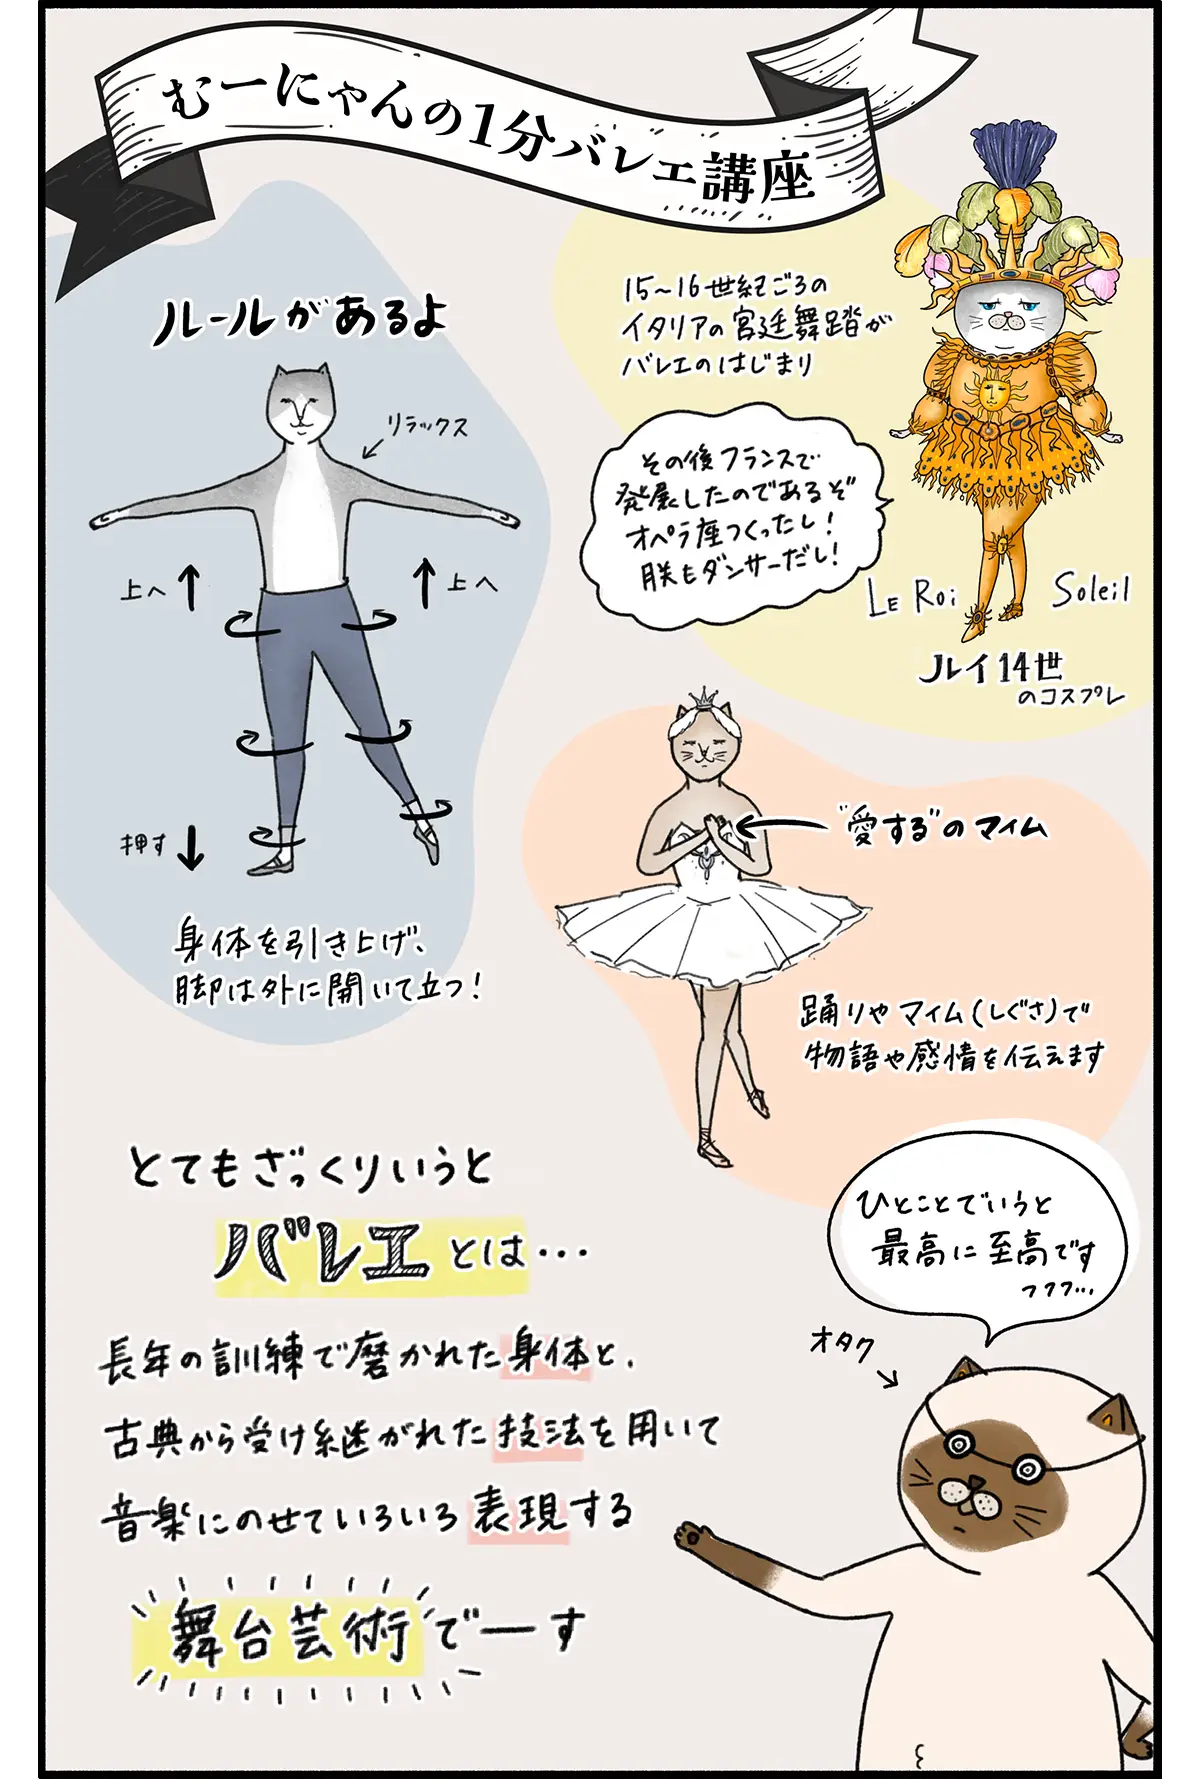 むーにゃんの1分バレエ講座
ルールがあるよ
リラックス
上へ
上へ
押す
身体を引き上げ、
脚は外に開いて立つ!
15~16世紀ごろの
イタリアの宮廷舞踏が
バレエのはじまり
その後フランスで
発展したのであるぞ
オペラ座つくったし!
朕もダンサーだし!
LE Roi Soleil
ルイ14世
のコスプレ
"愛する"のマイム
踊りやマイム(しぐさ)で
物語や感情を伝えます
とてもざっくりいうと
バレエとは…
長年の訓練で磨かれた身体と、
古典から受け継がれた技法を用いて
音楽にのせていろいろ表現する
舞台芸術でーす
ひとことでいうと
最高に至高です
フフフ…
オタク